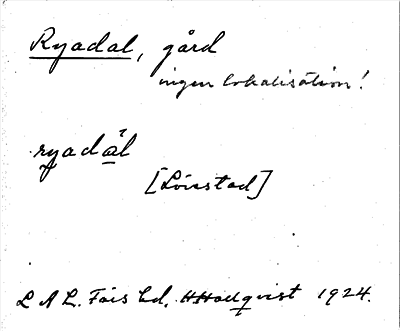 Ryadal, gård
ingen lokalisation!
ryadàl
[Lörstad]
L A L. Fårs hd. HHallqvist 1924.